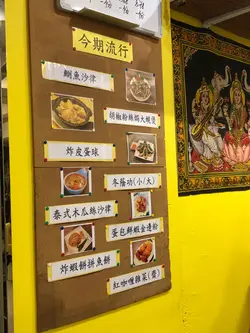 今期流行
鯏魚沙律
胡椒粉絲焗大蝦煲
炸皮蛋球
冬蔭功(小/大)
泰式木瓜絲沙律
蛋包鮮蝦金邊粉
炸蝦餅拼魚餅
紅咖喱雜菜(齋)